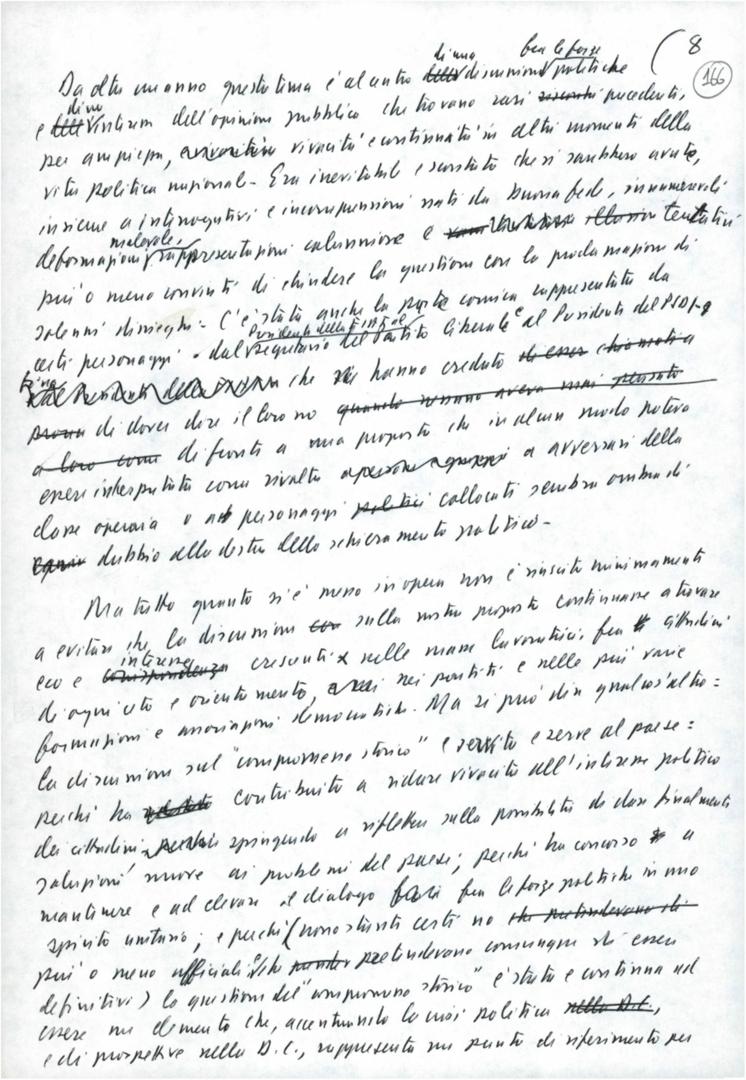 8
166
Da oltre un anno questo tema è al centro di una discussione fra le forze politiche
e di un interesse dell'opinione pubblica che trovano rari precedenti,
per ampiezza, vivacità e continuità in altri momenti della
vita politica nazionale. Era inevitabile e scontato che si sarebbero avute,
insieme a interrogativi e incomprensioni nati da buona fede, innumerevoli
deformazioni malevole, rappresentazioni calunniose e tentativi
più o meno convinti di chiudere la questione con la proclamazione di
solenni dinieghi. C'è stata anche la parte comica rappresentata da
certi personaggi - dal Presidente del Partito liberale al Presidente del PSDI -
che hanno creduto
di dover dire il loro no
di fronte a una proposta che in alcun modo poteva
essere interpretata come rivolta a avversari della
classe operaia o a personaggi collocati senz'ombra di
dubbio alla destra dello schieramento politico.
Ma tutto quanto si è messo in opera non è riuscito minimamente
a evitare che la discussione sulla nostra proposta continuasse a trovare
eco e interesse crescenti nelle masse lavoratrici, fra cittadini
di ogni ceto e orientamento, nei partiti e nelle più varie
formazioni e associazioni democratiche. Ma si può dire qualcos'altro:
la discussione sul "compromesso storico" è servita e serve al paese:
perché ha contribuito a ridare vivacità all'interesse politico
dei cittadini, spingendo a riflettere sulla possibilità di dare finalmente
soluzioni nuove ai problemi del paese; perché ha concorso a
mantenere e ad elevare il dialogo fra le forze politiche in uno
spirito unitario; e perché (nonostante certi no
più o meno ufficiali che pretendevano comunque di essere
definitivi) la questione del "compromesso storico" è stata e continua ad
essere un elemento che, accentuando la crisi politica
e di prospettive nella D.C., rappresenta un punto di riferimento per